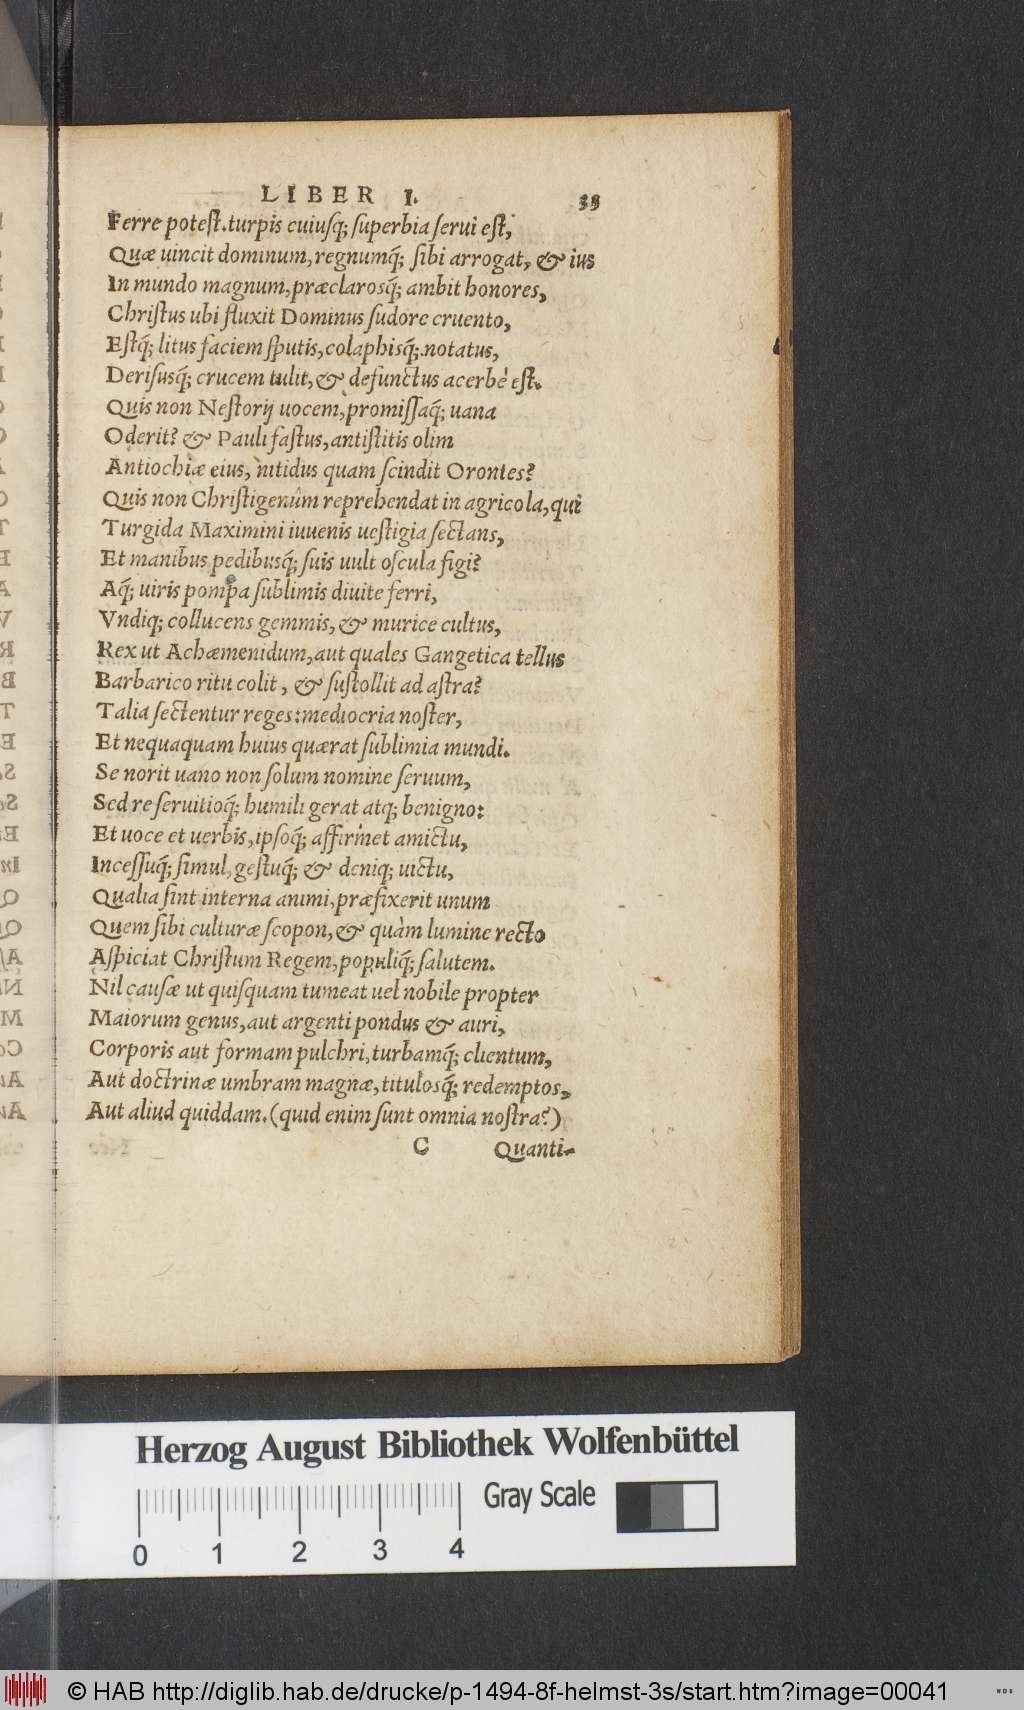 LIBER I. 33
Ferre potest. turpis cuiusq; superbia serui est,
Quæ uincit dominum, regnumq́; sibi arrogat, & ius
In mundo magnum, præclarosq́; ambit honores,
Christus ubi fluxit Dominus sudore cruento,
Estq́; litus faciem sputis, colaphisq́; notatus,
Derisusq́; crucem tulit, & defunctus acerbè est.
Quis non Nestorij uocem, promissaq́; uana
Oderit? & Pauli fastus, antistitis olim
Antiochiæ eius, nitidus quam scindit Orontes?
Quis non Christigenûm reprehendat in agricola, qui
Turgida Maximini iuuenis uestigia sectans,
Et manibus pedibusq́; suis uult oscula figi?
Aq́; uiris pompa sublimis diuite ferri,
Vndiq; collucens gemmis, & murice cultus,
Rex ut Achæmenidum, aut quales Gangetica tellus
Barbarico ritu colit, & sustollit ad astra?
Talia sectentur reges: mediocria noster,
Et nequaquam huius quærat sublimia mundi.
Se norit uano non solum nomine seruum,
Sed re seruitioq́; humili gerat atq; benigno:
Et uoce et uerbis, ipsoq́; affirmet amictu,
Incessuq́; simul, gestuq́; & deniq; uictu,
Qualia sint interna animi, præfixerit unum
Quem sibi culturæ scopon, & quàm lumine recto
Aspiciat Christum Regem, populiq́; salutem.
Nil causæ ut quisquam tumeat uel nobile propter
Maiorum genus, aut argenti pondus & auri,
Corporis aut formam pulchri, turbamq́; clientum,
Aut doctrinæ umbram magnæ, titulosq́; redemptos,
Aut aliud quiddam. (quid enim sunt omnia nostra?)
C Quanti-
Herzog August Bibliothek Wolfenbüttel
Gray Scale
0 1 2 3 4
© HAB http://diglib.hab.de/drucke/p-1494-8f-helmst-3s/start.htm?image=00041